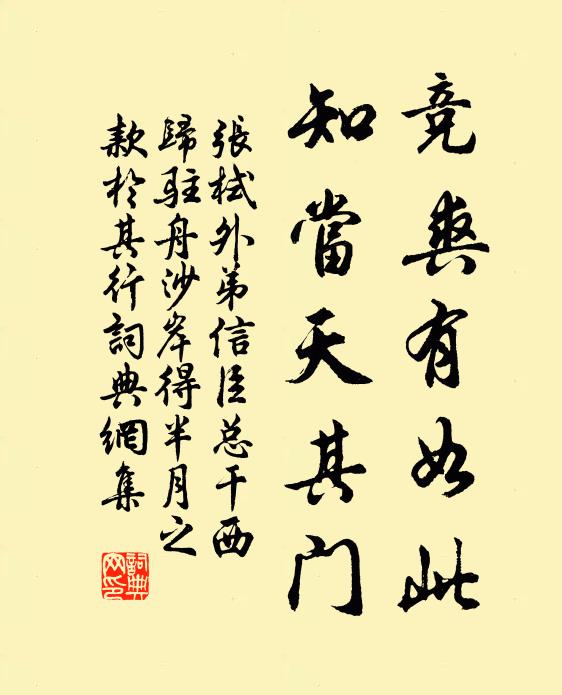 竞爽有如此
知當天其門
張栻外弟信臣总干西
歸駐舟沙岸得半月之
款於其行詞典網集
詞典
网印